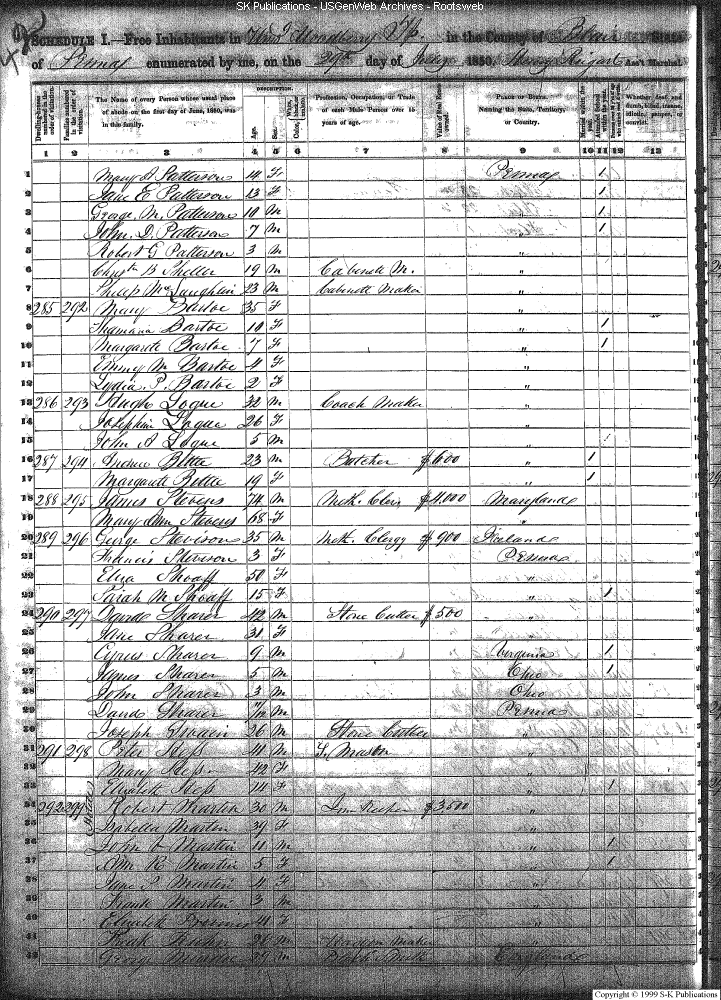 SK Publications - USGenWeb Archives - Rootsweb
SCHEDULE I.—Free Inhabitants in Woodberry Tp. in the County of Blair State
of Penna enumerated by me, on the 29th day of July 1850. Ass't Marshal.
Dwelling-houses numbered in the order of visitation.
Families numbered in the order of visitation.
The Name of every Person whose usual place of abode on the first day of June, 1850, was in this family.
DESCRIPTION.
Age.
Sex.
Color
Profession, Occupation, or Trade of each Male Person over 15 years of age.
Value of Real Estate owned.
PLACE OF BIRTH. Naming the State, Territory, or Country.
Married within the year.
Attended School within the year.
Whether deaf and dumb, blind, insane, idiotic, pauper, or convict.
1 2 3 4 5 6 7 8 9 10 11 12 13
1 Mary A Patterson 14 F Penna 1
2 Jane E Patterson 13 F " 1
3 George M. Patterson 10 M " 1
4 John D. Patterson 7 M " 1
5 Robert G Patterson 3 M "
6 B Sheller 19 M Cabinett M. "
7 Philip McLaughlin 23 M Cabinett Maker "
8 285 292 Mary Bartoe 35 F "
9 Bartoe 10 F " 1
10 Margarete Bartoe 7 F " 1
11 Emmy M Bartoe 4 F "
12 Lydia P. Bartoe 2 F "
13 286 293 Hugh Logue 32 M Coach Maker "
14 Josephine Logue 26 F "
15 John A Logue 5 M "
16 287 294 23 M Butcher $600 " 1
17 Margarete 19 F " 1
18 288 295 James Stevens 74 M Meth. Clerg $4.000 Maryland
19 Mary Ann Stevens 68 F "
20 289 296 George Stevison 35 M Meth. Clergy $900 Ireland
21 Francis Stevison 3 F Penna
22 Eliza Shoaff 50 F "
23 Sarah M Shoaff 15 F " 1
24 290 297 David Sharer 42 M Stone Cutter $500 "
25 Jane Sharer 31 F "
26 Cyrus Sharer 9 M Virginia 1
27 James Sharer 5 M Ohio 1
28 John Sharer 3 M Ohio
29 David Sharer /12 M Penna
30 Joseph Swain 26 M Stone Cutter "
31 291 298 Peter Hess 41 M S. Mason "
32 Mary Hess 42 F "
33 Elizabeth Hess 14 F " 1
34 292 299 Hotel Robert Martin 30 M Inn Keeper $3500 "
35 Isabella Martin 39 F "
36 John Martin 11 M " 1
37 Ann R Martin 5 F " 1
38 Jane Martin 4 F "
39 Frank Martin 3 M "
40 Elizabeth 41 F "
41 Kuhn 28 M Waggon Maker "
42 George 27 M Black Smith England
Copyright © 1999 S-K Publications